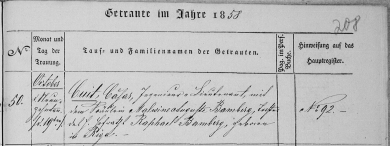 Getraute im Jahre 1858
208
№
Monat und Tag der Trauung.
Tauf- und Familiennamen der Getrauten.
Pag. im Pers. Buche.
Hinweisung auf das Hauptregister.
October
50.
Cäsar, Ingenieur-Lieutenant, mit
dem Fräulein Malwina Bamberg, Tochter
des Raphael Bamberg, geboren
in Riga.
№ 92.